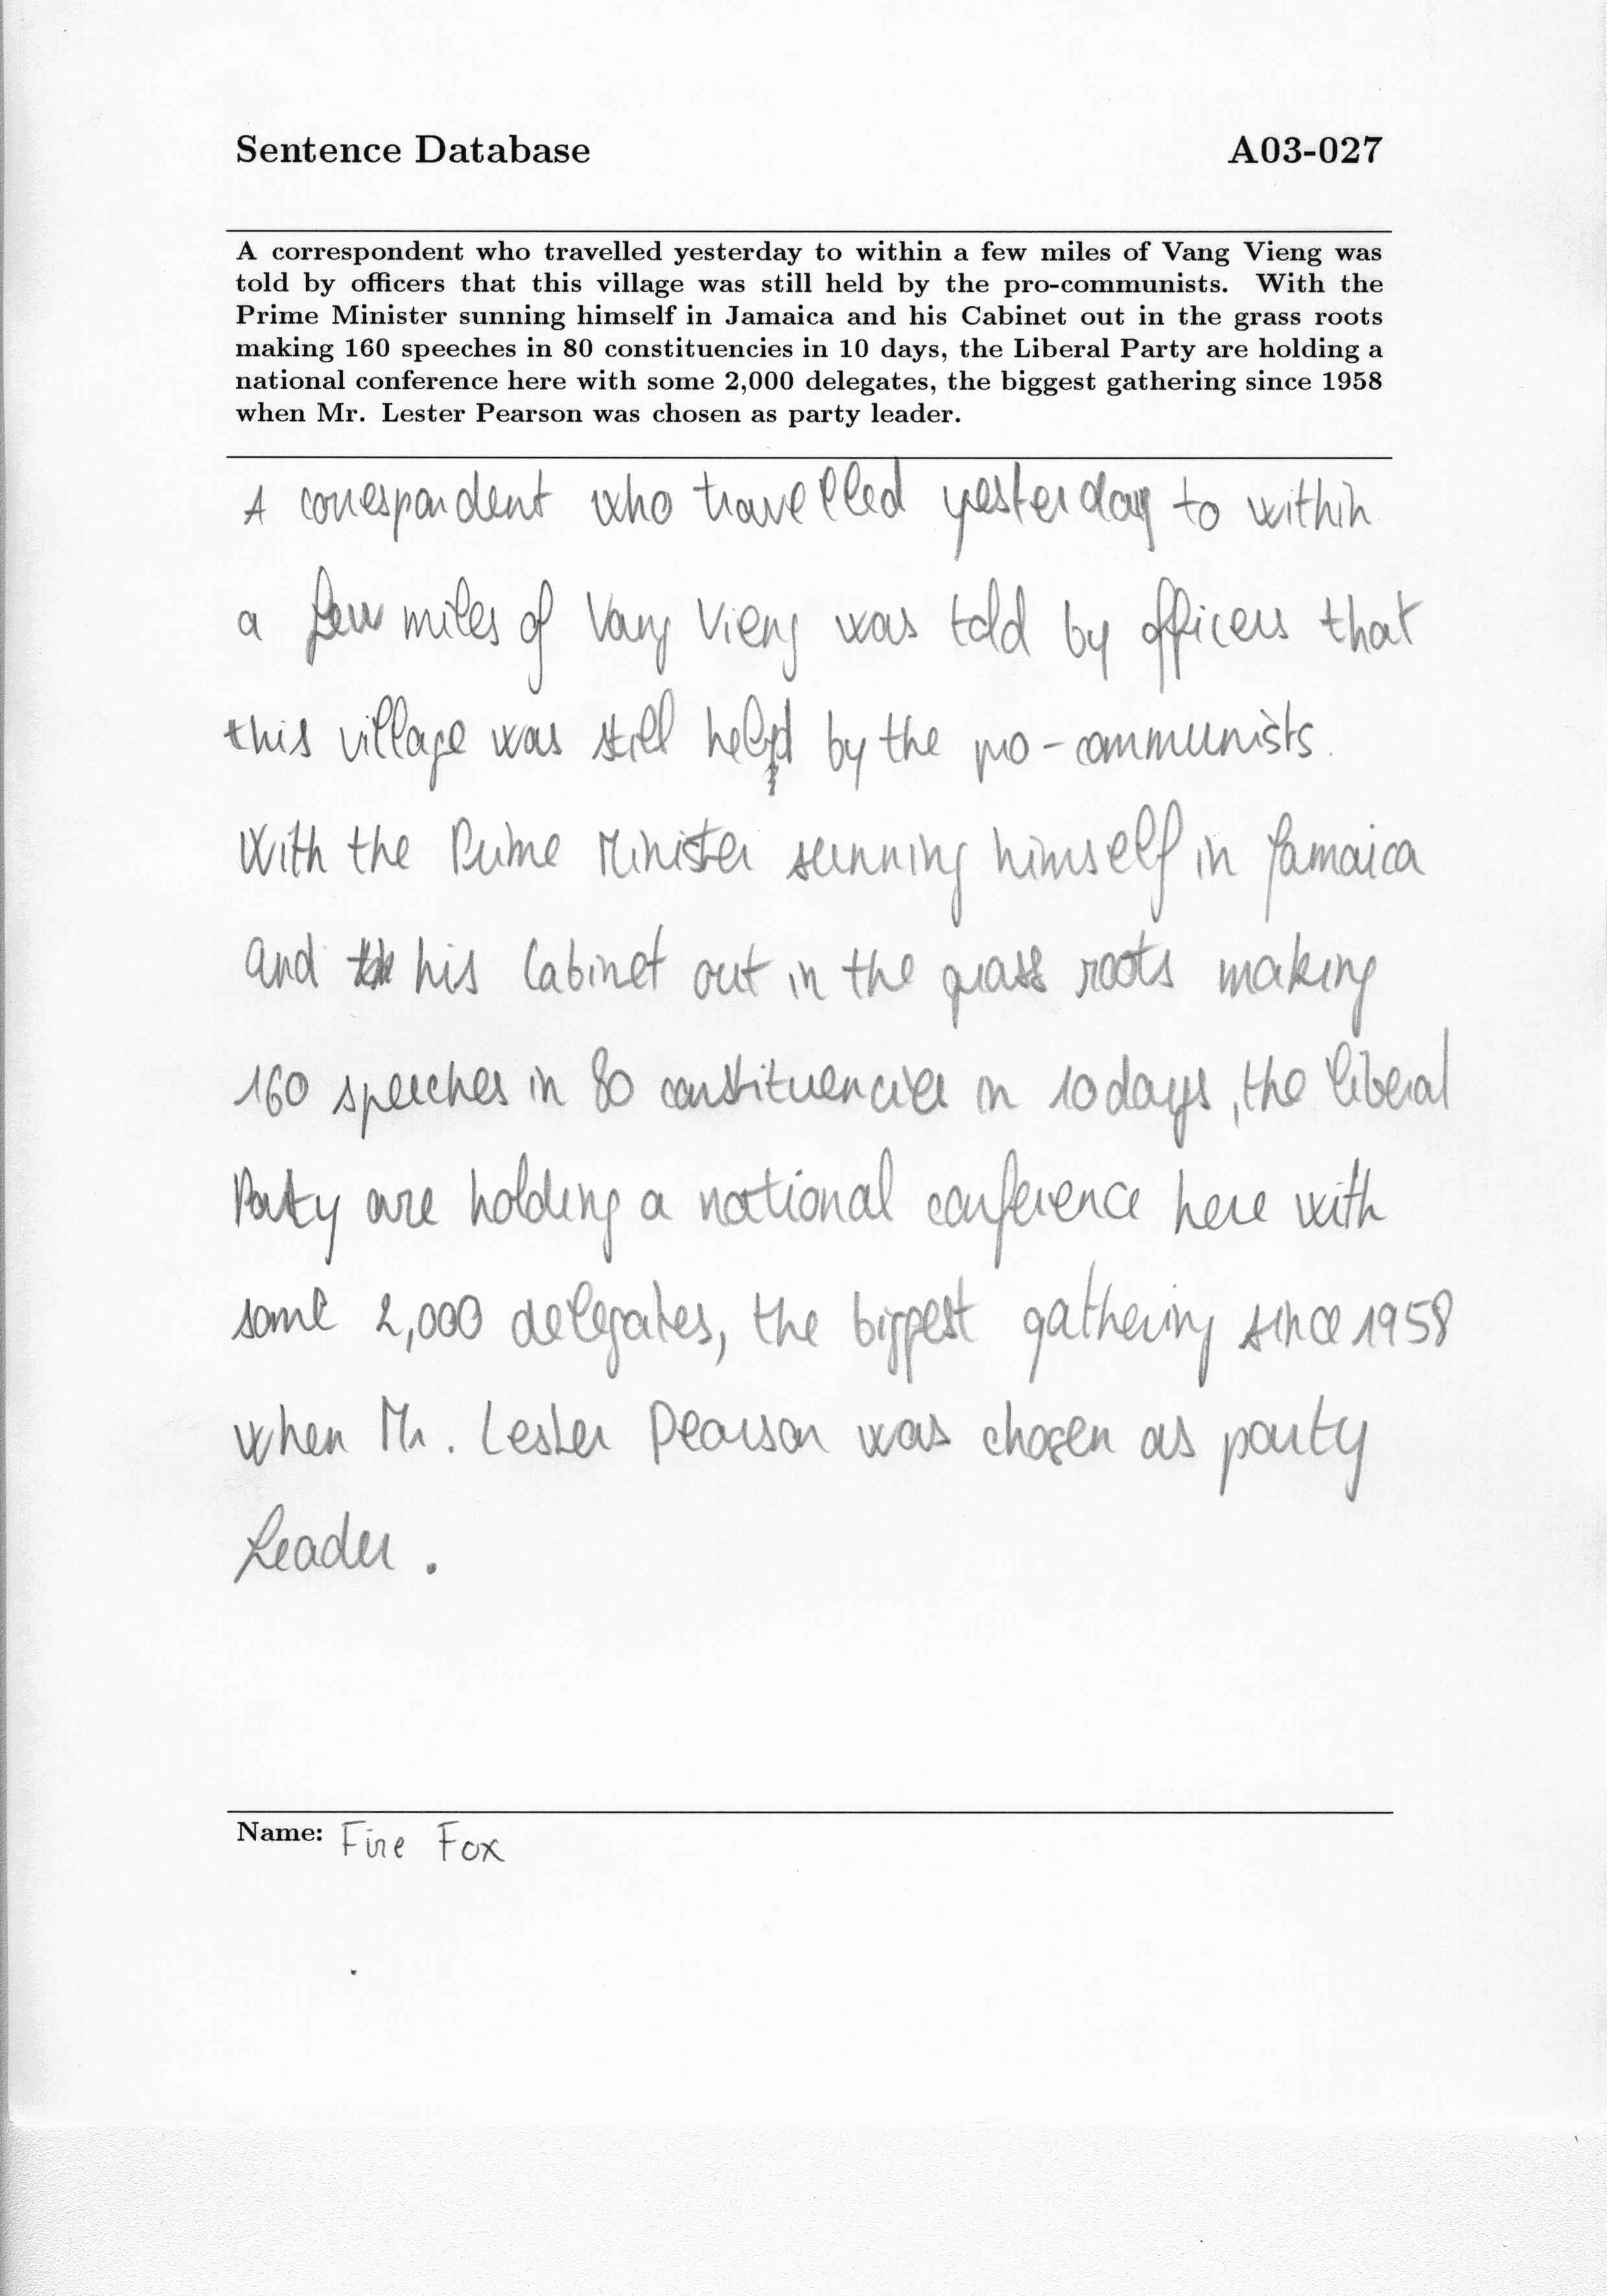 Sentence Database A03-027
A correspondent who travelled yesterday to within a few miles of Vang Vieng was
told by officers that this village was still held by the pro-communists. With the
Prime Minister sunning himself in Jamaica and his Cabinet out in the grass roots
making 160 speeches in 80 constituencies in 10 days, the Liberal Party are holding a
national conference here with some 2,000 delegates, the biggest gathering since 1958
when Mr. Lester Pearson was chosen as party leader.
A correspondent who travelled yesterday to within
a few miles of Vang Vieng was told by officers that
this village was still held by the pro-communists.
With the Prime Minister sunning himself in Jamaica
and his Cabinet out in the grass roots making
160 speeches in 80 constituencies in 10 days, the liberal
Party are holding a national conference here with
some 2,000 delegates, the biggest gathering since 1958
when Mr. Lester Pearson was chosen as party
Leader.
Name: Fire Fox